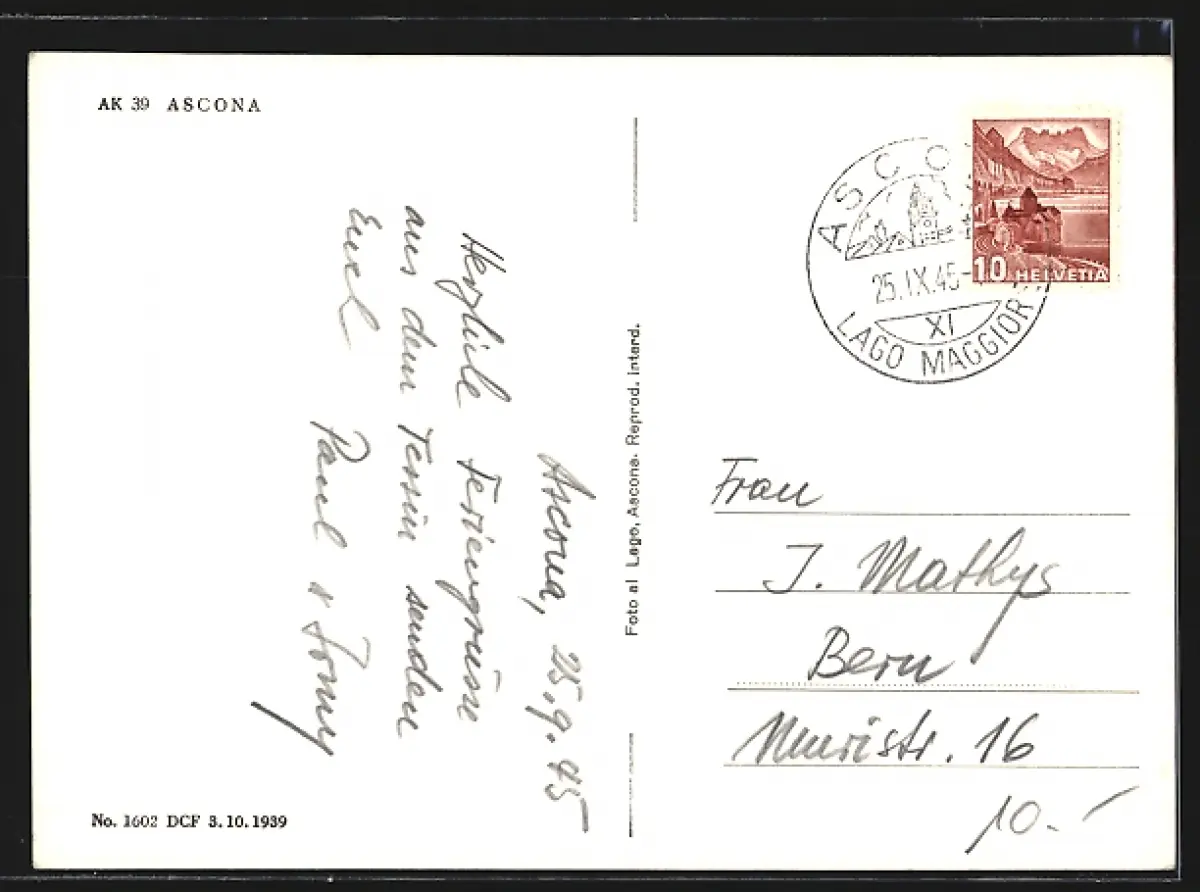 AK 39 ASCONA
Ascona, 25.9.45
Herzliche Feriengrüsse
aus dem Tessin senden
Euch
Paul &
No. 1602 DCF 3.10.1939
Foto al Lago, Ascona. Reprod. interd.
ASCO
25.IX.45-
XI
LAGO MAGGIOR
10 HELVETIA
Frau
J. Mathys
Bern
Muristr. 16
10.-